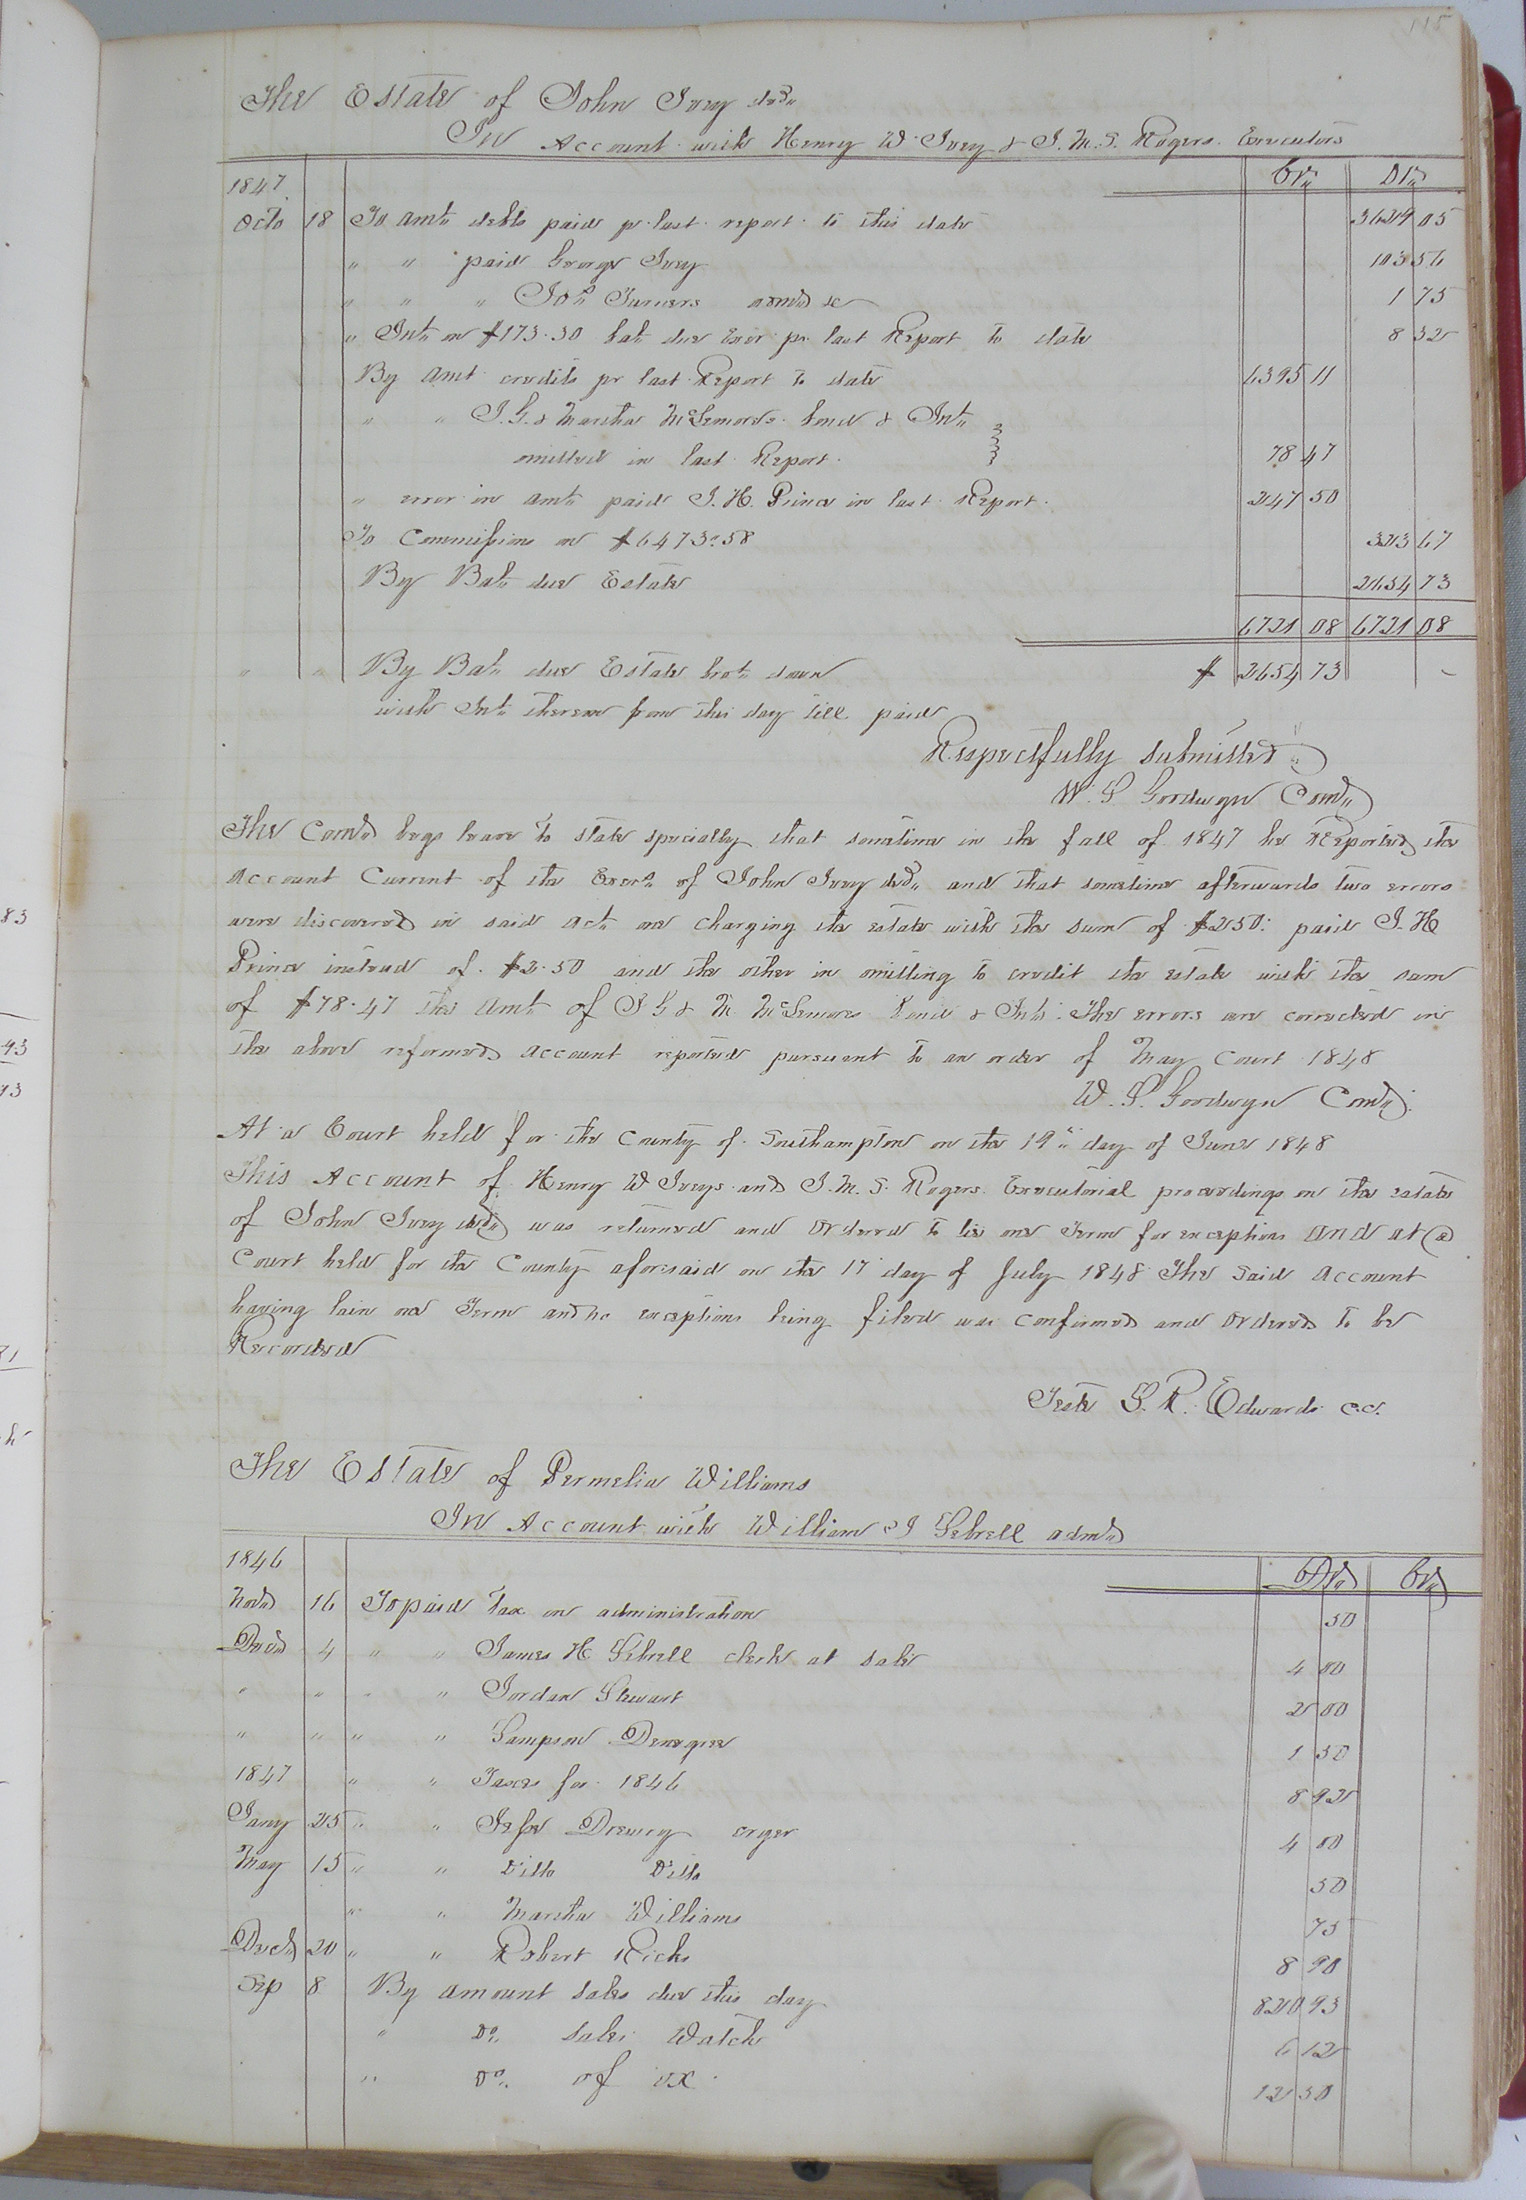 115
The Estate of John Ivey decd.
In Account with Henry W. Ivey & J. M. S. Rogers Executors
1847 Cr. Dr.
Octo 18 To Amt. debts paid pr. last report to this date 3629 05
" " paid George Ivey 103 56
" " " Jos. Turners &c 1 75
" Int. on $173.30 bal. due Exor pr last Report to date 8 32
By Amt credits pr last Report to date 6395 11
" " J. G. & Martha McLemores bond & Int.
omitted in last Report. 78 47
" error in amt. paid J. H. Prince in last Report. 247 50
To Commissions on $6473.58 323 67
By Bal. due Estate 2654 73
6721 08 6721 08
" " By Bal. due Estate brot. down $ 2654 73 -
with Int. thereon from this day till paid
Respectfully submitted
W. S. Goodwyn Comr.
The Comr. begs leave to state specially that sometime in the fall of 1847 he Reported the
Account Current of the Exors. of John Ivey decd. and that sometime afterwards two errors
were discovered in said act. one charging the estate with the sum of $250: paid J. H
Prince instead of $2.50 and the other in omitting to credit the estate with the sum
of $78.47 the Amt. of J G & M McLemores bond & Int. The errors are corrected in
the above reformed account reported pursuant to an order of May Court 1848
W. S. Goodwyn Comr.
At a Court held for the County of Southampton on the 19th day of June 1848
This Account of Henry W Iveys and J. M. S. Rogers Executorial proceedings on the estate
of John Ivey decd. was returned and Ordered to lie one Term for exceptions and at a
Court held for the County aforesaid on the 17 day of July 1848 The said Account
having lain one Term and no exceptions being filed was confirmed and Ordered to be
Recorded
Teste L. R. Edwards c.c.
The Estate of Permelia Williams
In Account with William J Sebrell admr.
1846 Dr. Cr.
Novr. 16 To paid Tax on administration 50
Decr. 4 " " James H Sebrell clerk at sale 4 00
" " " " Jordan Stewart 2 00
" " " " Sampson Denegree 1 50
1847 " " Taxes for 1846 8 92
Jany 25 " " Jesse Drewry cryer 4 00
May 15 " " Ditto Ditto 50
" " Martha Williams 75
Decr. 20 " " Robert Ricks 8 90
Sep 8 By amount sales due this day 820 93
" Do. sales Watch 6 12
" Do. of ox 12 50